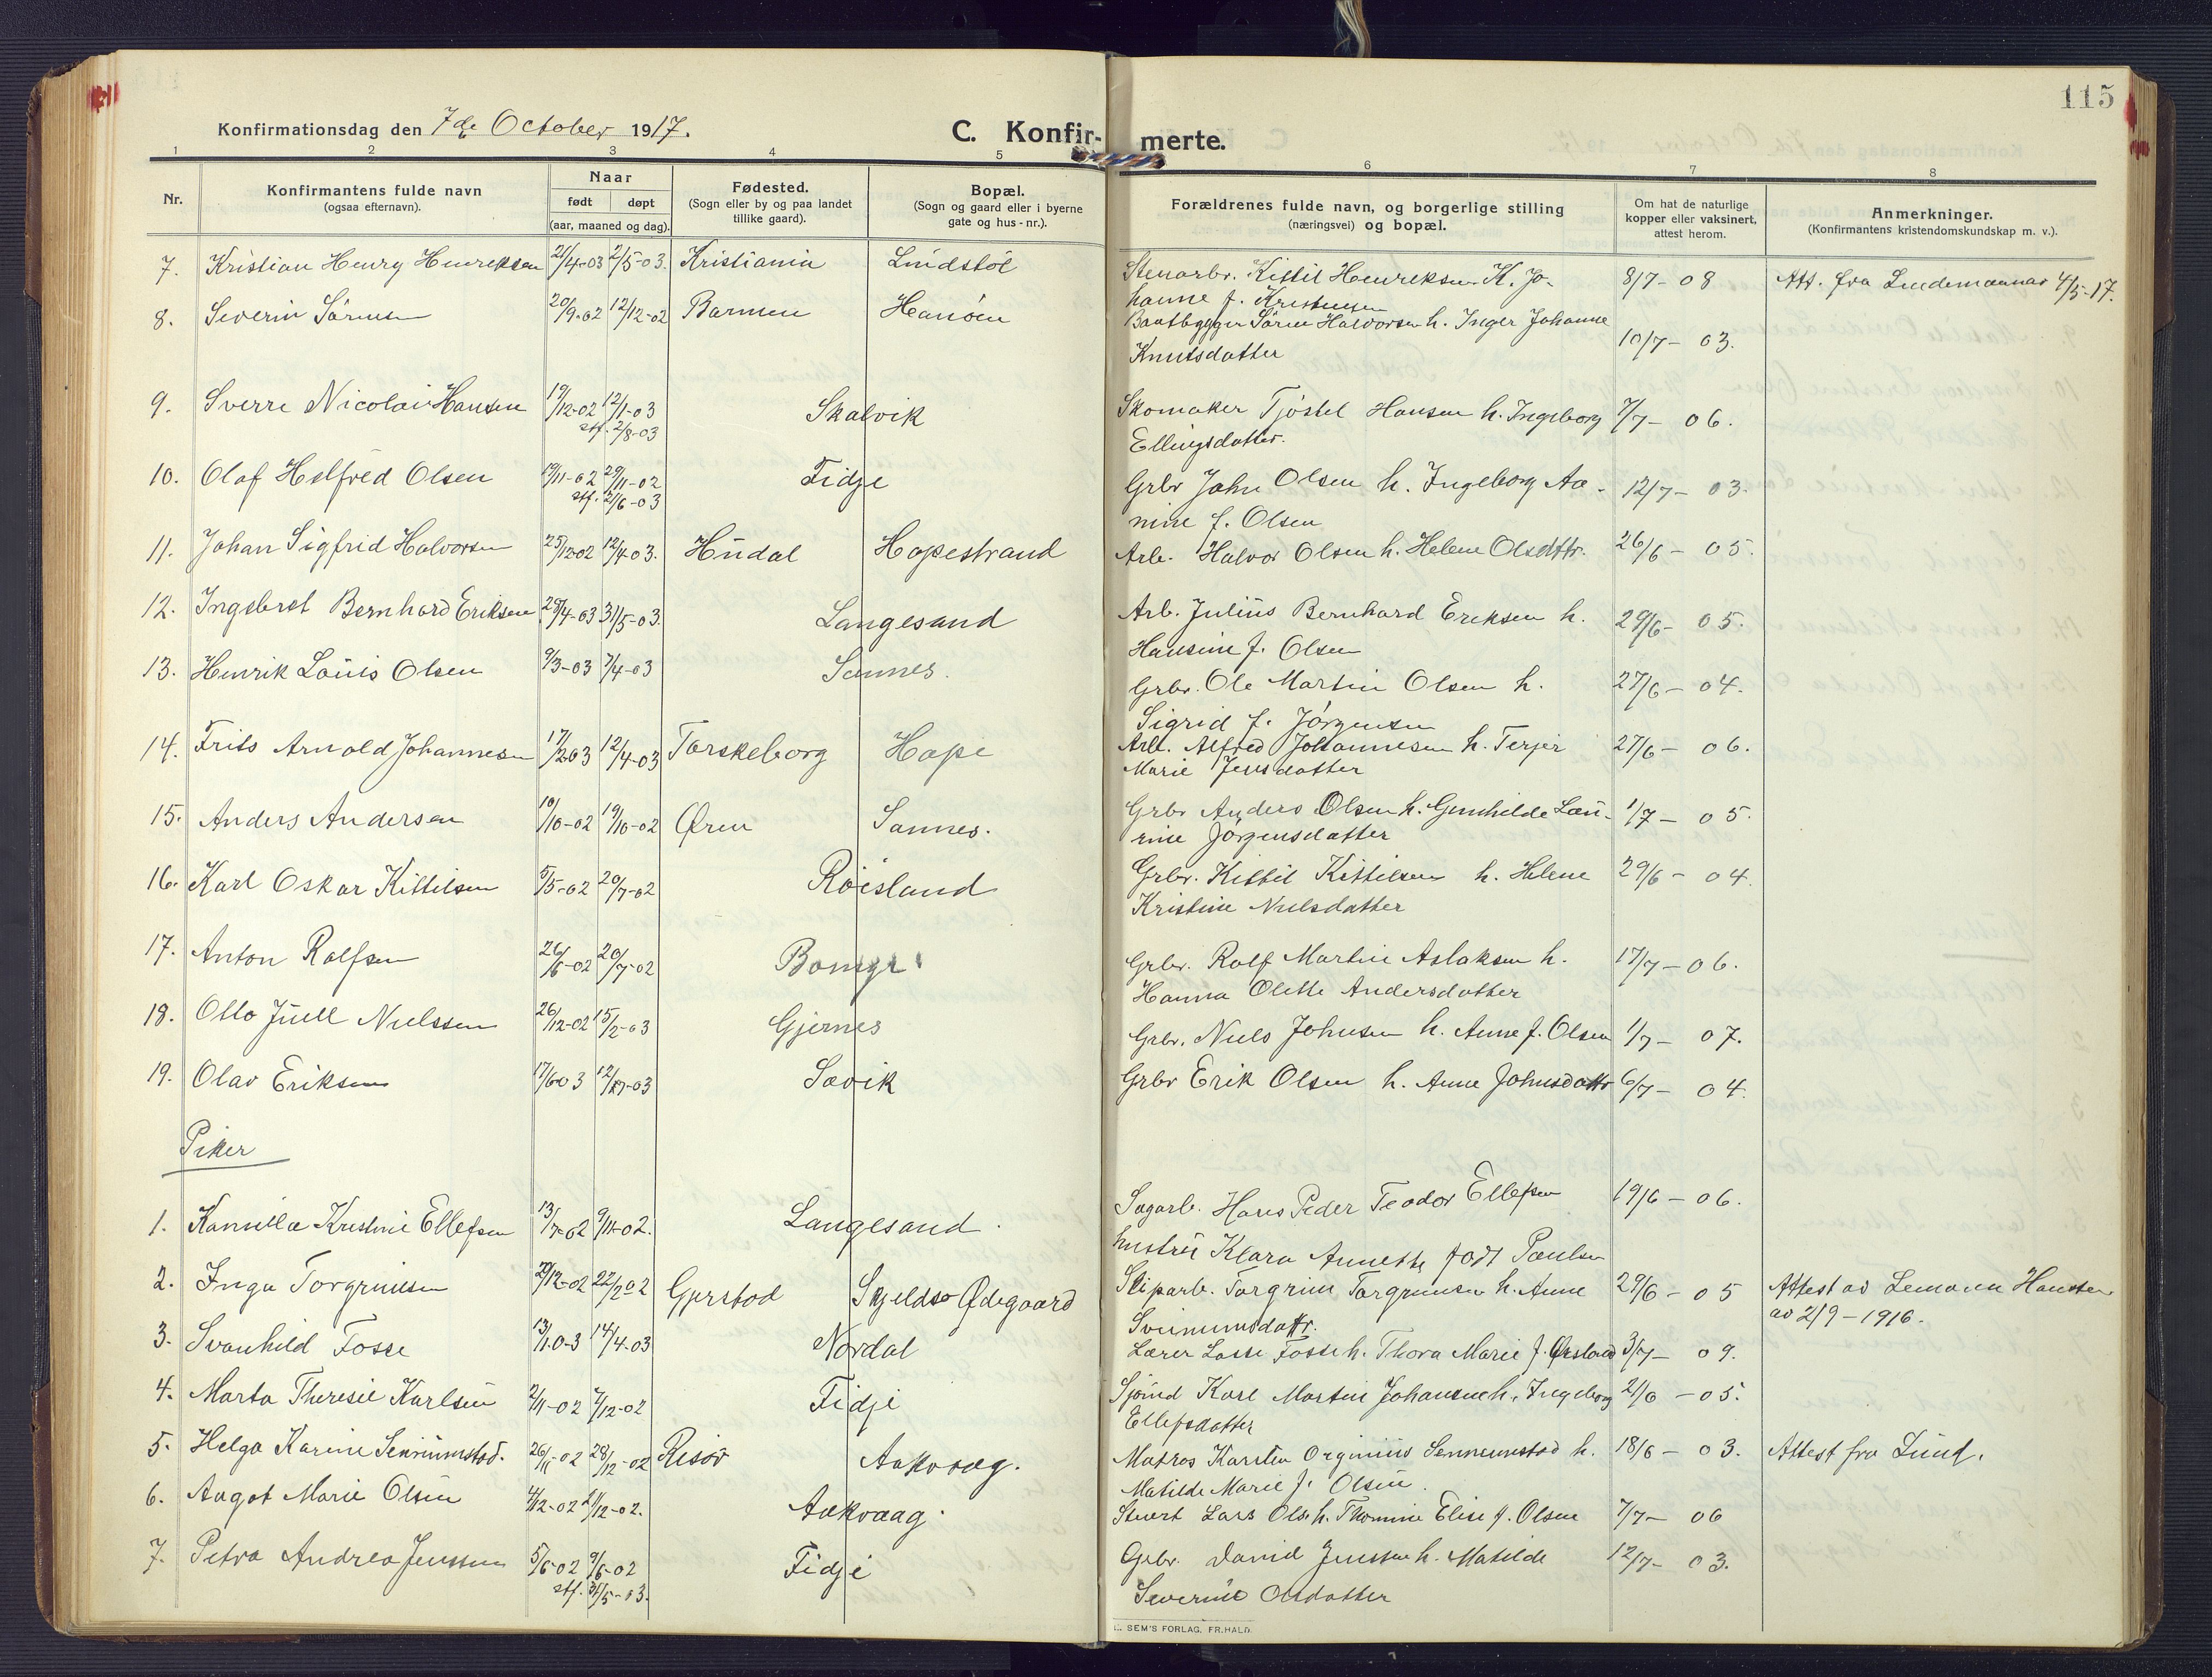 115
Konfirmationsdag den 7de October 1917.
C. Konfir- merte.
1 2 3 4 5 6 7 8
Nr. Konfirmantens fulde navn (ogsaa efternavn). Naar født døpt (aar, maaned og dag). Fødested. (Sogn eller by og paa landet tillike gaard). Bopæl. (Sogn og gaard eller i byerne gate og hus-nr.). Forældrenes fulde navn, og borgerlige stilling (næringsvei) og bopæl. Om hat de naturlige kopper eller vaksinert, attest herom. Anmerkninger. (Konfirmantens kristendomskundskap m. v.).
7. Kristian Henry Henriksen 21/4-03 2/5-03. Kristiania Lindstöl Stenarbr. Kittil Henriksen K. Jo- 8/7-08 Att. fra Lindemannar 4/5-17.
hanne f. Kristensen
8. Severin Sörensen 20/9-02 12/12-02 Barmen Hansöen Baatbygger Sören Halvorsen h. Inger Johanne 10/7-03.
Knutsdatter
9. Sverre Nicolai Hansen 19/12-02 12/1-03 Skalvik Skomaker Tjöstel Hansen h. Ingeborg 7/7-06.
stf. 2/8-03 Ellingsdatter.
10. Olaf Helfred Olsen 19/11-02 29/11-02 Fidje Grbr John Olsen h. Ingeborg Aa- 12/7-03.
stf. 21/6-03 nine f. Olsen
11. Johan Sigfrid Halvorsen 25/12-02 12/4-03. Hüdal Hopestrand Arb. Halvor Olsen h. Helene Olsdttr. 26/6-05.
12. Ingebret Bernhard Eriksen 28/4-03 31/5-03. Langesand Arb. Juliüs Bernhard Ereksen h. 29/6-05.
Hansine f. Olsen
13. Henrik Loüis Olsen 9/3-03 7/4-03 Sannes. Grbr. Ole Martin Olsen h. 27/6-04.
Sigrid f. Jörgensen
14. Frits Arnold Johannesen 17/2 03 12/4-03 Torskeborg Hope Arb. Alfred Johannesen h. Terjer 27/6-06.
Marie Jensdatter
15. Anders Andersen 10/10-02 19/10-02 Øren Sannes. Grbr Anders Olsen h. Gunhilde Laü- 1/7-05.
rine Jörgensdatter
16. Karl Oskar Kittilsen 5/5-02 20/7-02 Röisland Grbr. Kittil Kittilsen h. Helene 29/6-04.
Kristine Nielsdatter
17. Anton Rolfsen 26/6-02 20/7-02 Grbr. Rolf Martin Aslaksen h. 17/7-06.
Hanna Olette Andersdatter
18. Otto Jüell Nielssen 26/12-02 15/2-03 Gjernes Grbr. Niels Johnsen h. Anne f. Olsen 1/7-07.
19. Olav Eriksen 17/6 03 12/7-03 Sævik Grbr Erik Olsen h. Anne Johnsdattr 6/7-04.
Piker
1. Kamilla Kristine Ellefsen 13/7-02 9/11-02. Langesand. Sagarb. Hans Peder Teodor Ellefsen 19/6-06.
hustrü Klara Annette født Paulsen
2. Inga Torgrimsen 29/12-02 22/2 02 Gjerstad Skjeldsø Ødegaard Sliparb. Torgrim Torgrimsen h. Anne 29/6-05 Attest av Lemann Hansen
Sveinumsdattr. av 2/9-1916.
3. Svanhild Fosse 13/1 0-3 14/4-03 Nordal Lærer Lasse Fosse h. Thora Marie f. Ørsland 3/7-09.
4. Marta Theresie Karlsen 2/11-02 7/12-02 Fidje Sjömd Karl Martin Johansen h. Ingeborg 21/6-05.
Ellefsdatter
5. Helga Karine Sennumstad. 26/11-02 28/12-02 Risör Aakvaag. Matros Karsten Orginius Sennumstad h. 18/6-03. Attest fra Lund.
Matilde Marie f. Olsen.
6. Aagot Marie Olsen 4/12-02 21/12-02. Aakvaag. Stuert Lars Ols. h. Thomine Elise f. Olsen 7/7-06
7. Petra Andrea Jenssen 5/6-02 9/6-02 Fidje Grbr. David Jenssen h. Matilde 12/7-03.
stf. 31/5-03. Severine Olsdatter
SEM'S FORLAG. FR.HALD.